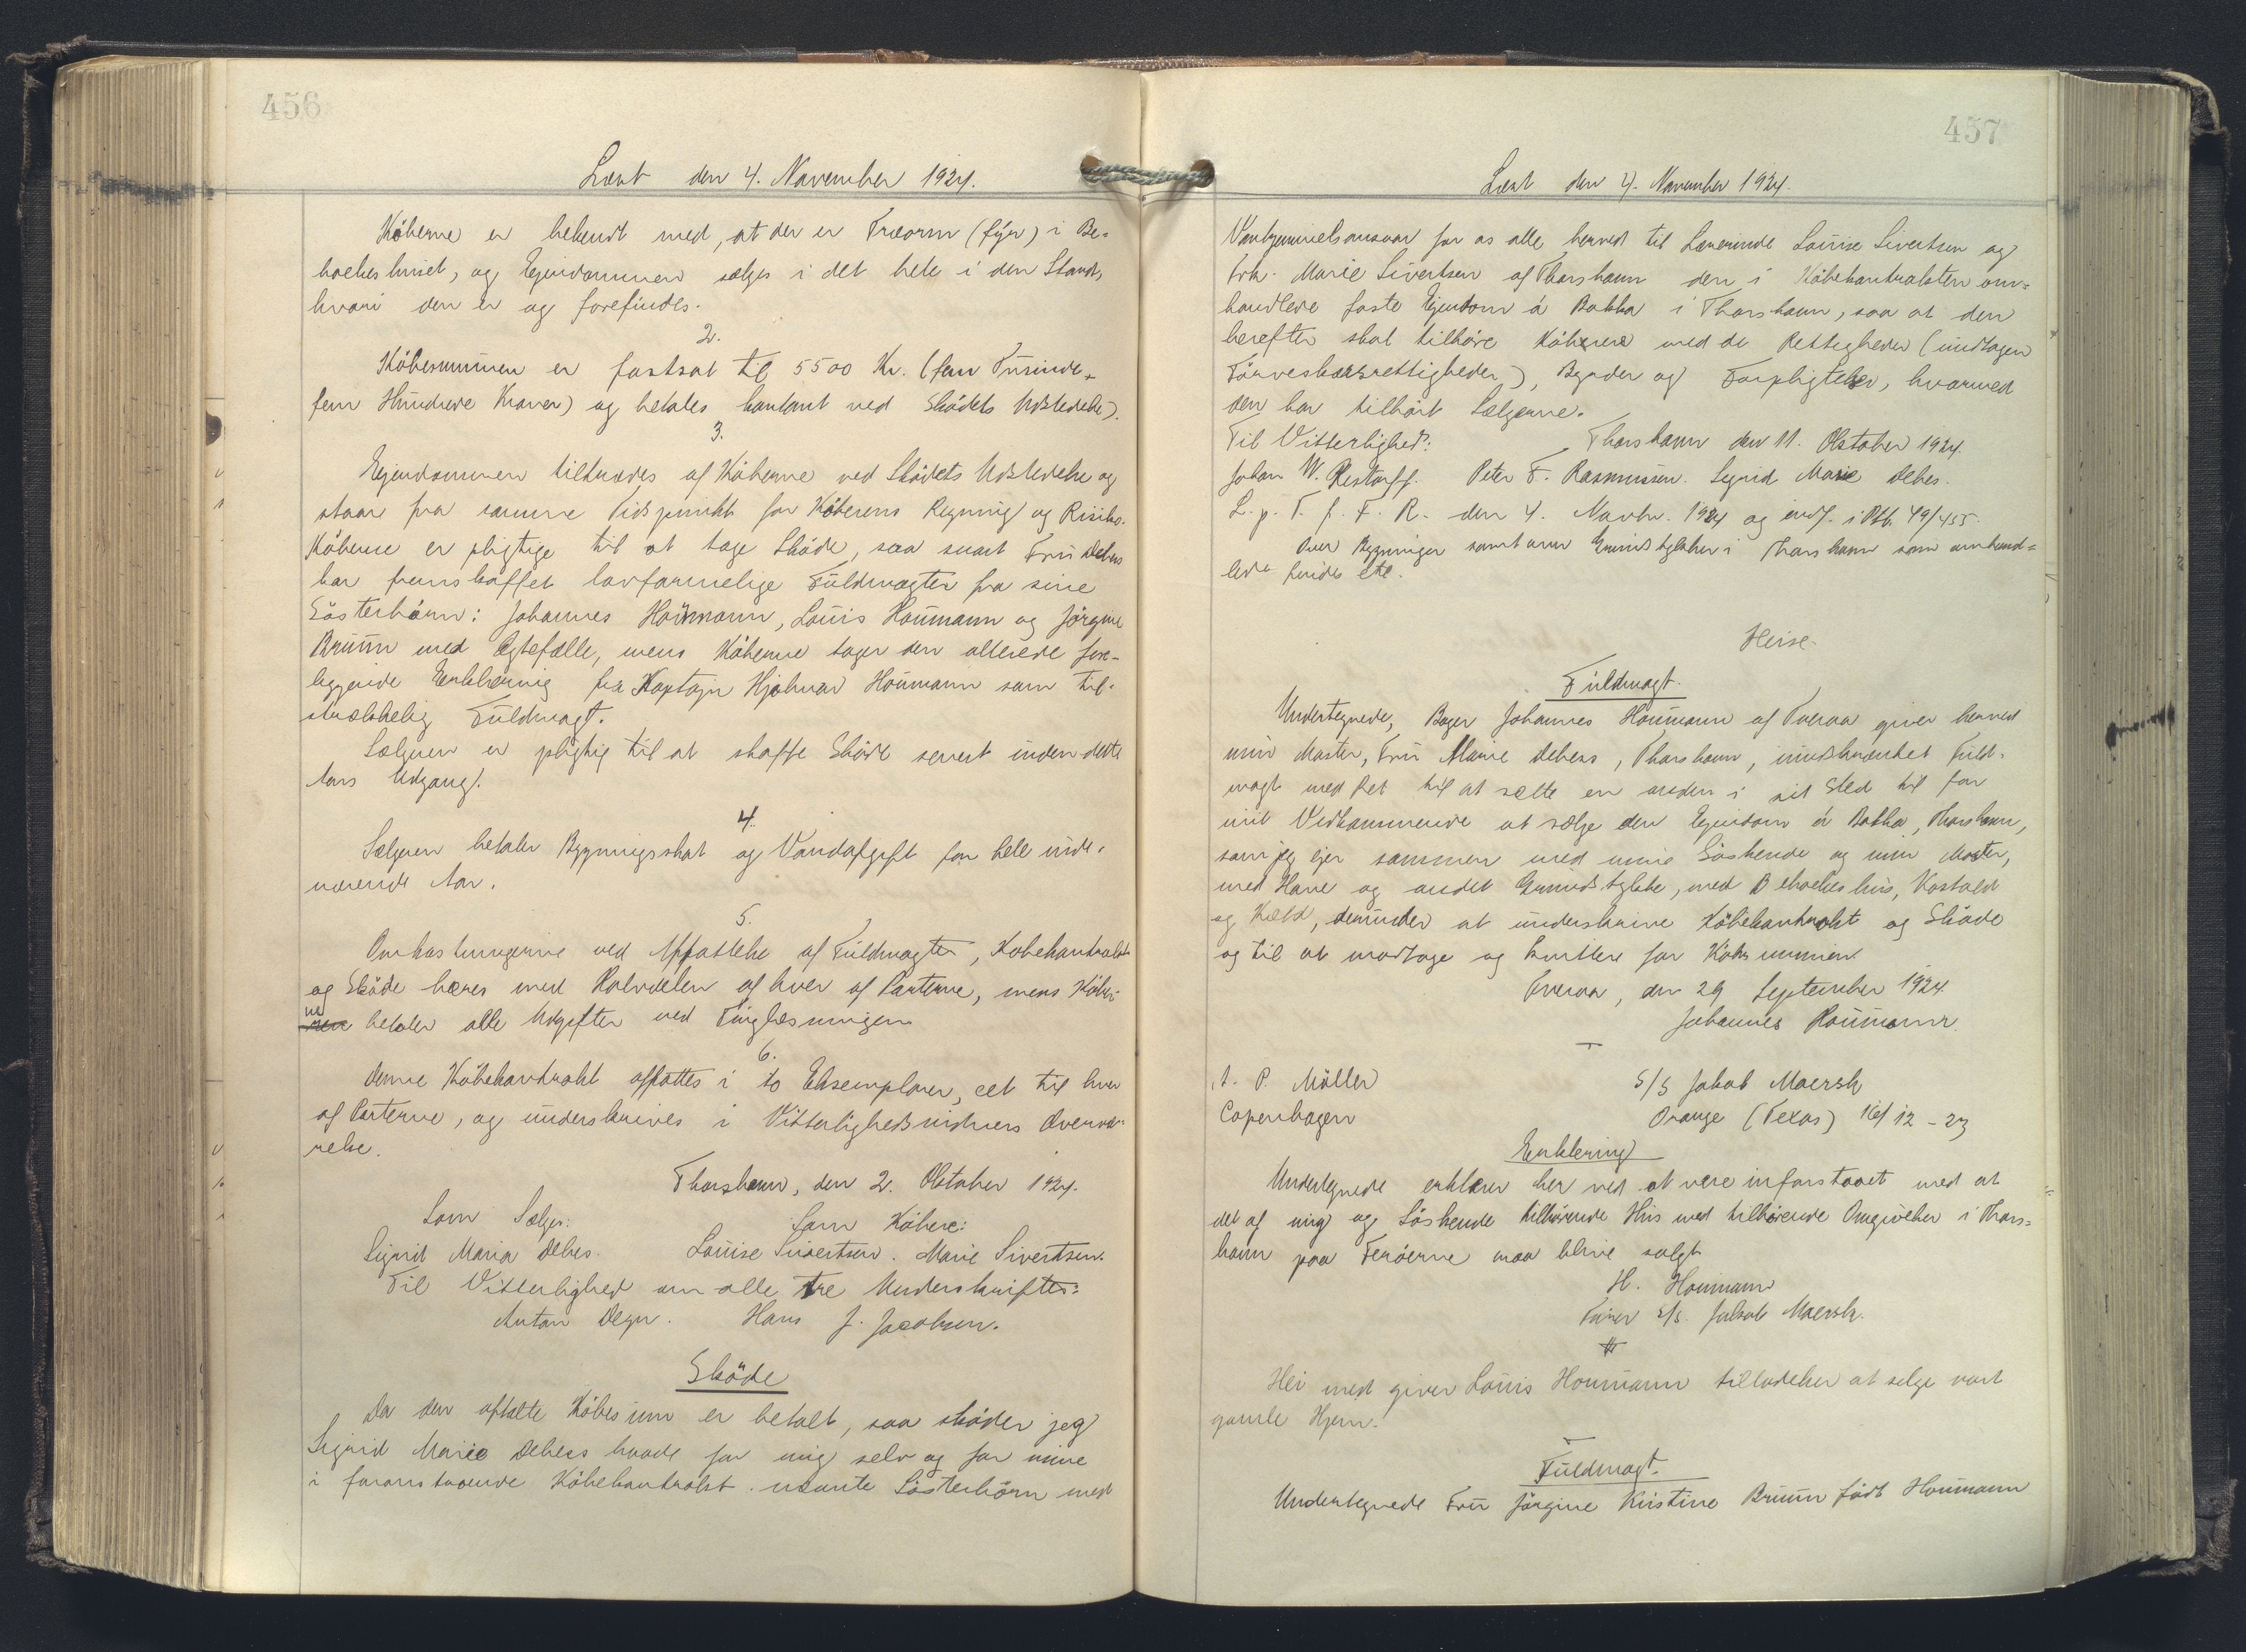 456
Læst den 4. November 1924.
Köberne er bekendt med, at der er Træorm (fýr) i Be-
boelseshuset, og Ejendommen sælges i det hele i den Stand,
hvori den er og forefindes.
2.
Købesummen er fastsat til 5500 Kr. (fem Tusinde
fem Hundrede Kroner) og betales kontant ved Sködets Udstedelse).
3.
Ejendommen tiltrædes af Köberne ved Sködets Udstedelse og
staar fra samme Tidspunkt for Köberens Regning og Risiko.
Köberne er pligtige til at tage Sköde, saa snart Fru Debes
har fremskaffet lovformelige Fuldmagter fra sine
Sösterbörn: Johannes Houmann, Louis Houmann og Jörgine
Bruun med Ægtefælle, mens Köberne tager den allerede fore-
liggende Erklæring fra Kaptajn Hjalmar Houmann som til-
strækkelig Fuldmagt.
Sælgeren er pligtig til at skaffe Sköde senest inden dette
Aars Udgang.
4.
Sælgeren betaler Bygningsskat og Vandafgift for hele inde-
værende Aar.
5.
Omkostningerne ved Affattelse af Fuldmagter, Købekontrakt
og Sköde bæres med Halvdelen af hver af Parterne, mens Köber-
ne betaler alle Udgifter ved Tinglæsningen.
6.
Denne Købekontrakt affattes i to Eksemplarer, eet til hver
af Parterne, og underskrives i Vitterlighedsvidners Overvæ-
relse.
Thorshavn, den 2. Oktober 1924.
Som Sælger: Som Købere:
Sigrid Maria Debes. Louise Sivertsen. Marie Sivertsen.
Til Vitterlighed om alle tre Underskrifter:
Anton Degn. Hans J. Jacobsen.
Sköde
Da den aftalte Købesum er betalt, saa sköder jeg
Sigrid Marie Debess baade for mig selv og for mine
i foranstaaende Købekontrakt nævnte Sösterbörn med
457
Læst den 4. November 1924.
Vanhjemmelsansvar for os alle herved til Lærerinde Louise Sivertsen og
Frk. Marie Sivertsen af Thorshavn den i Købekontrakten om-
handlede faste Ejendom á Bakka i Thorshavn, saa at den
herefter skal tilhöre Köberne med de Rettigheder (undtagen
Törveskærsrettigheder), Byrder og Forpligtelser, hvormed
den har tilhört Sælgerne.
Til Vitterlighed: Thorshavn den 11. Oktober 1924.
Johan W. Restorff. Peter F. Rasmussen. Sigrid Marie Debes.
L. p. T. f. F. R. den 4. Novbr. 1924 og indf. i Ptb. 49/455.
Over Bygninger samt over Grundstykker i Thorshavn som omhand-
lede findes etc.
Heise.
Fuldmagt.
Undertegnede, Bager Johannes Houmann af Tveraa giver herved
min Moster, Fru Marie Debess, Thorshavn, uindskrænket Fuld-
magt med Ret til at sætte en anden i sit Sted til for
mit Vedkommende at sælge den Ejendom á Bakka, Thorshavn,
som jeg ejer sammen med mine Söskende og min Moster,
med Have og andet Grundstykke, med Beboelseshus, Kostald
og Kæld, derunder at underskrive Købekontrakt og Sköde
og til at modtage og kvittere for Købesummen.
Tveraa, den 29 September 1924
Johannes Houmann.
A. P. Möller S/S Jakob Maersk
Copenhagen Orange (Texas) 16/12-23
Erklering
Undertegnede erklærer her ved at vere inforstaaet med at
det af mig og Söskende tilhörende Hus med tilhörende Omgivelser i Thors-
havn paa Feröerne maa blive solgt
H. Houmann
Förer S/S. Jakob Maersk.
Her med giver Louis Houmann tilladelser at selge vort
gamle Hjem.
Fuldmagt.
Undertegnede Fru Jörgine Kristine Bruun födt Houmann